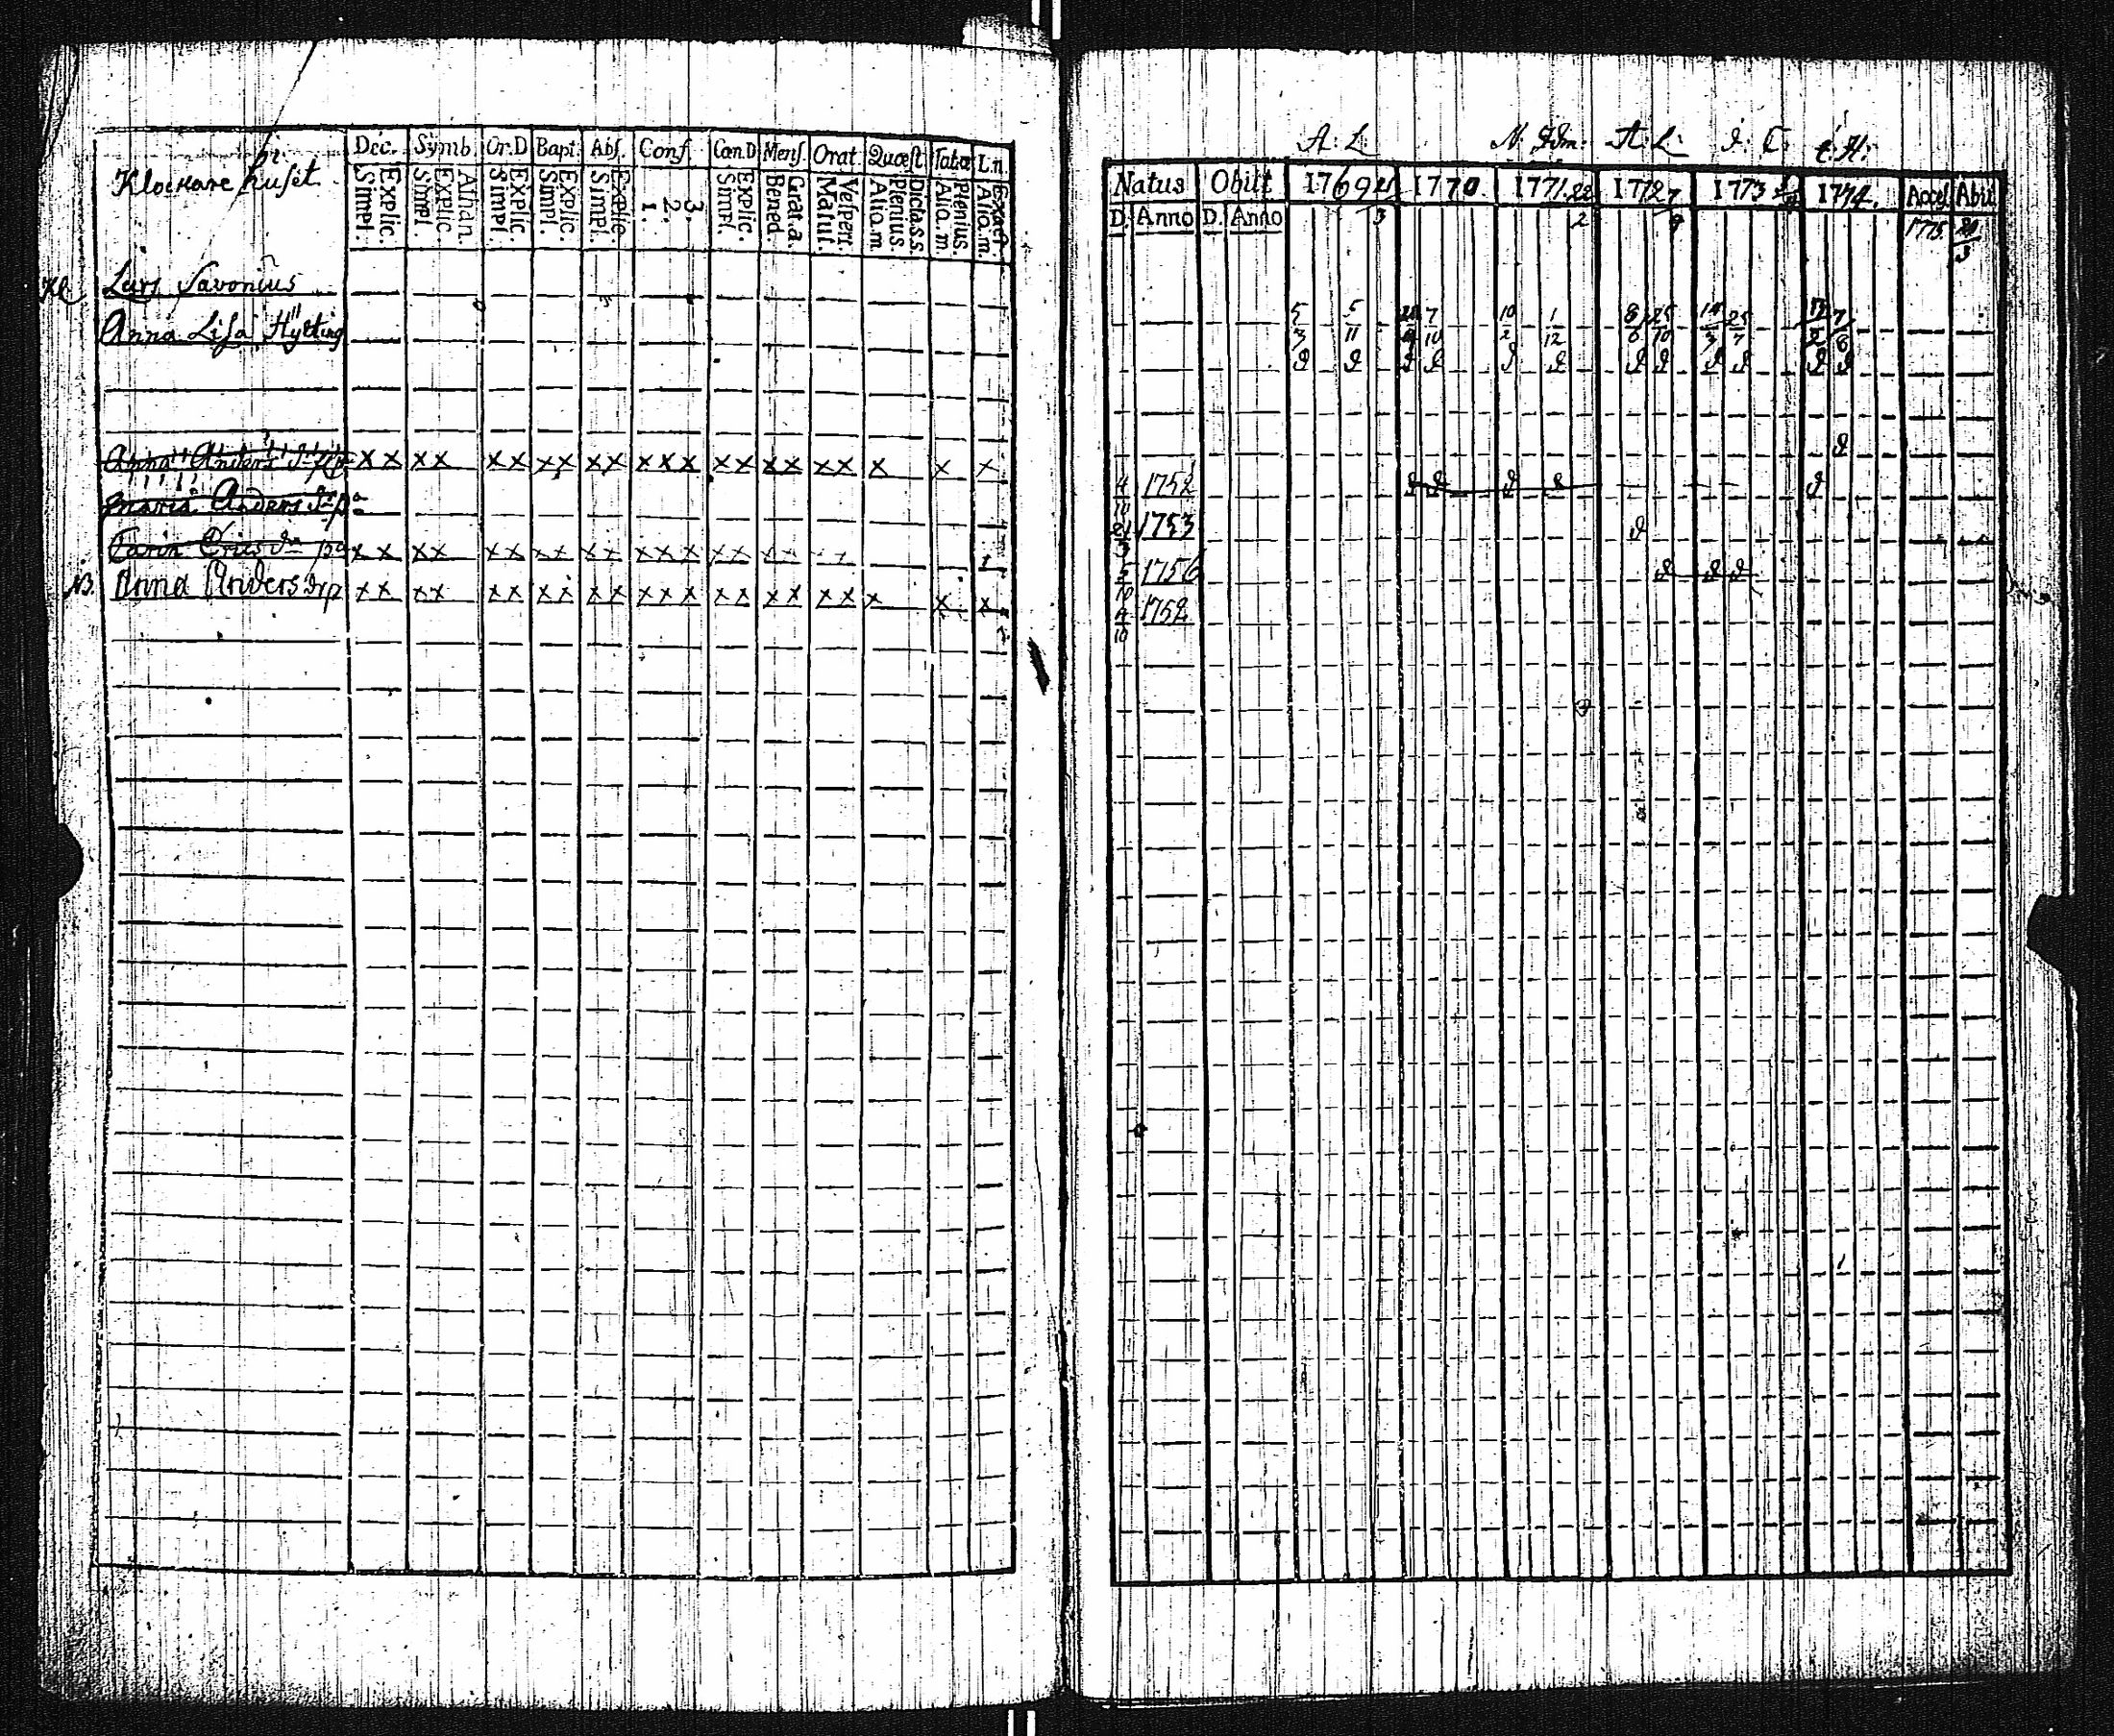 Klockare huset
Dec. Symb. Or.D Bapt. Abs. Conf. Cœn.D Mens. Orat. Quæst. Tabœ L.n.
Simpl. Explic. Simpl. Explic. Athan. Simpl. Explic. Simpl. Explic. Simpl. Explic. 1. 2. 3. Simpl. Explic. Bened. Grat.a. Matut. Vesperi. Alio.m. Plenius. Dicta.s.s. Alio.m. Plenius. Alio.m. Exact
Kl Lars Savonius
Anna Lisa Hytting
Anna Anders dr p x x x x x x x x x x x x x x x x x x x x x
Maria Anders dr p
Carin Erics dr p x x x x x x x x x x x x x x x x x x
NB. Anna Anders dr p x x x x x x x x x x x x x x x x x x x x x
A: L: A: L: I: C:
Natus Obiit 1769 1770 1771 22 1772 7 1773 1774. Acces. Abiit
D. Anno D. Anno 3 2 9 1775
5 5 7 10 1 8 25 25 7
3 11 10 2 12 10 7 6
4 1752
10
21 1753
3
5 1756
10
4 1752
10